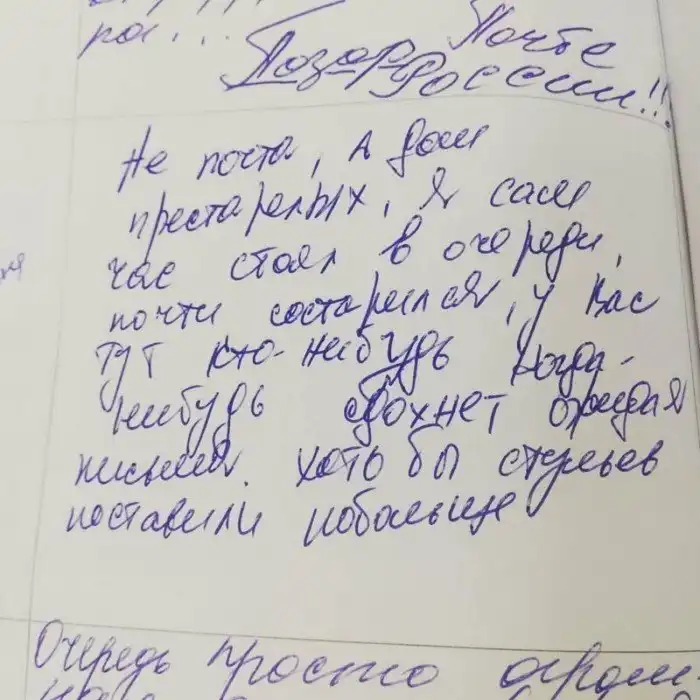 ра...
Позор Почте
России!!!
Не почта, а дом
престарелых, я сам
час стоял в очереди,
почти состарился, у вас
тут кто-нибудь когда-
нибудь сдохнет ожидая
письма. хоть бы стульев
поставили побольше
Очередь просто огром